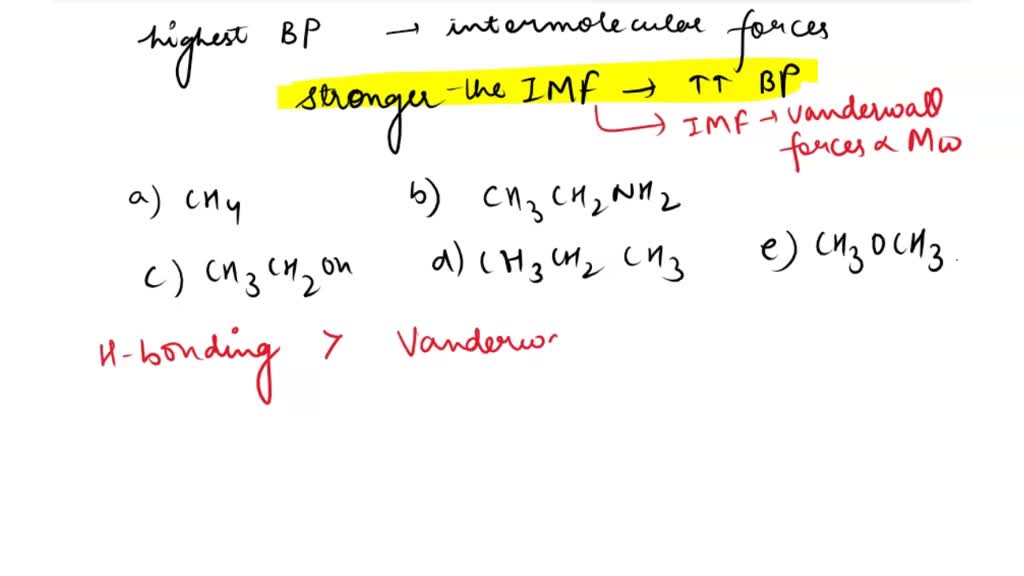 highest BP → intermolecular forces
stronger the IMF → ↑↑ BP
IMF → vanderwall
forces ∝ Mw
a) CH4 b) CH3CH2NH2
c) CH3CH2OH d) CH3CH2CH3 e) CH3OCH3.
H-bonding > Vanderwa